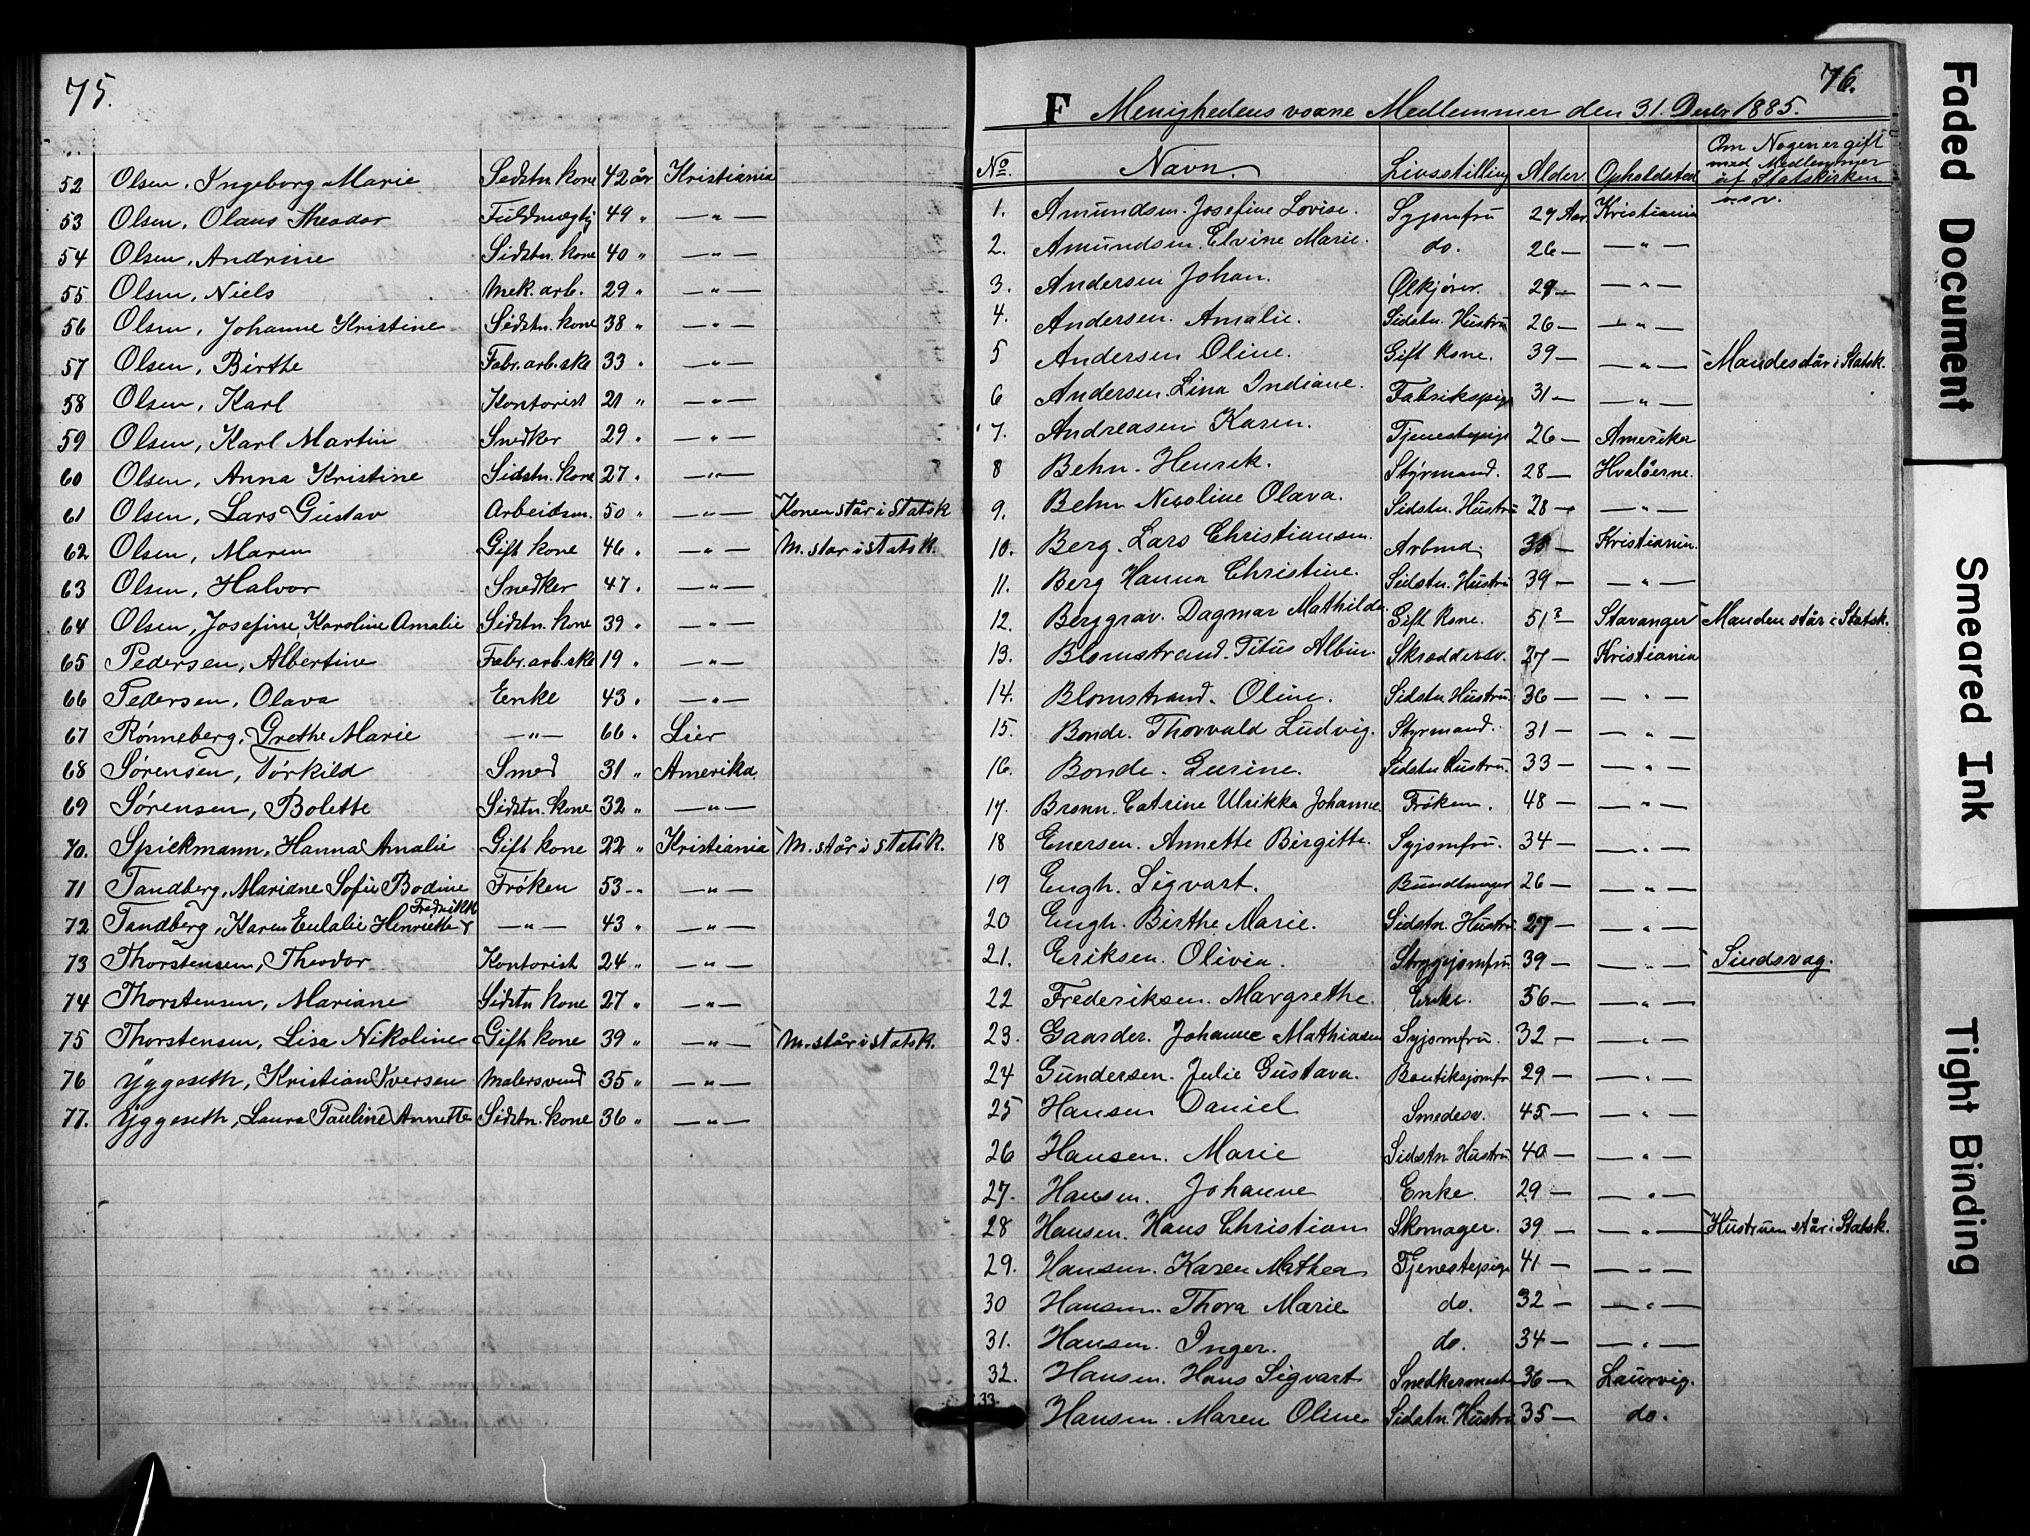 75.
52 Olsen, Ingeborg Marie Sidstn. kone 42 år Kristiania
53 Olsen, Olaus Theodor Fuldmægtig 49 " — " —
54 Olsen, Andrine Sidstn. kone 40 " — " —
55 Olsen, Niels Mek. arb. 29 " — " —
56 Olsen, Johanne Kristine Sidstn. kone 38 " — " —
57 Olsen, Birthe Fabr. arb. ske 33 " — " —
58 Olsen, Karl Kontorist 21 " — " —
59 Olsen, Karl Martin Snedker 29 " — " —
60 Olsen, Anna Kristine Sidstn. kone 27 " — " —
61 Olsen, Lars Gustav Arbeidsm. 50 " — " — Konen står i Statsk
62 Olsen, Maren Gift kone 46 " — " — M. star i statsk.
63 Olsen, Halvor Snedker 47 " — " —
64 Olsen, Josefine Karoline Amalie Sidstn. kone 39 " — " —
65 Pedersen, Albertine Fabr. arb. ske 19 " — " —
66 Pedersen, Olava Enke 43 " — " —
67 Rønneberg, Grethe Marie — " — 66 " Lier
68 Sørensen, Torkild Smed 31 " Amerika
69 Sørensen, Bolette Sidstn. kone 32 " — " —
70. Spickmann, Hanna Amalie Gift kone 22 " Kristiania M. står i statsk.
71 Tandberg, Mariane Sofie Bodine Frøken 53 " — " —
72 Tandberg, Karen Eulalie Henriette Fredrikke — " — 43 " — " —
73 Thorstensen, Theodor Kontorist 24 " — " —
74 Thorstensen, Mariane Sidstn kone 27 " — " —
75 Thorstensen, Lisa Nikoline Gift kone 39 " — " — M. står i statsk.
76 Yggeseth, Kristian Iversen Malersvend 35 " — " —
77. Yggeseth, Laura Pauline Annette Sidstn. kone 36 " — " —
76.
F Menighedens voxne Medlemmer den 31. Decbr 1885.
No. Navn. Livsstilling Alder. Opholdsted Om Nogen er gift
med Medlemmer
af Statskirken
o. s. v.
1. Amundsen. Josefine Lovise. Syjomfru 29 Aar Kristiania
2. Amundsen. Elvine Marie. do. 26 — — " —
3. Andersen Johan. Ølkjører. 29 — — " —
4. Andersen. Amalie. Sidstn. Hustru 26 — — " —
5 Andersen Oline. Gift Kone. 39 — — " — Manden står i Statsk.
6 Andersen. Lina Indiane. Fabrikspige 31 — — " —
7. Andreasen Karen. Tjenestepige 26 — Amerika
8 Behn. Henrik. Styrmand. 28 — Hvaløerne.
9. Behn Nicoline Olava. Sidstn. Hustru 28 — — " —
10. Berg. Lars Christiansen. Arbmd. — Kristiania.
11. Berg Hanna Christine. Sidstn. Hustru 39 — — " —
12. Berggrav. Dagmar Mathilde Gift Kone. 51? — Stavanger Manden står i Statsk.
13. Blomstrand. Titus Albin. Skræddersv. 27 — Kristiania
14. Blomstrand. Oline. Sidstn Hustru 36 — — " —
15. Bonde. Thorvald Ludvig. Styrmand. 31 — — " —
16. Bonde. Gurine. Sidstn Hustru. 33 — — " —
17. Bronn. Catrine Ulrikka Johanne Frøken. 48 — — " —
18 Enersen. Annette Birgitte. Syjomfru. 34 — — " —
19 Engh. Sigvart. Bundtmager 26 — — " —
20 Engh. Birthe Marie. Sidstn. Hustru 27 — — " —
21. Eriksen. Olivia. Strygejomfru 39 — — " — Sindsvag.
22 Frederiksen. Margrethe. Enke. 56 — — " —
23. Gaarder. Johanne Mathiasen Syjomfru. 32 — — " —
24 Gundersen. Julie Gustava. Boutiksjomfr 29 — — " —
25 Hansen Daniel Smedesv. 45 — — " —
26 Hansen. Marie Sidstn Hustru 40 — — " —
27. Hansen. Johanne Enke. 29 — — " —
28 Hansen. Hans Christian Skomager. 39 — — " — Hustruen står i Statsk.
29. Hansen. Karen Mathea Tjenestepige 41 — — " —
30 Hansen. Thora Marie do. 32 — — " —
31. Hansen. Inger. do. 34 — — " —
32. Hansen. Hans Sigvart Snedkermester 36 — Laurvig.
33. Hansen. Maren Oline Sidstn. Hustru 35 — do.
Faded Document
Smeared Ink
Tight Binding